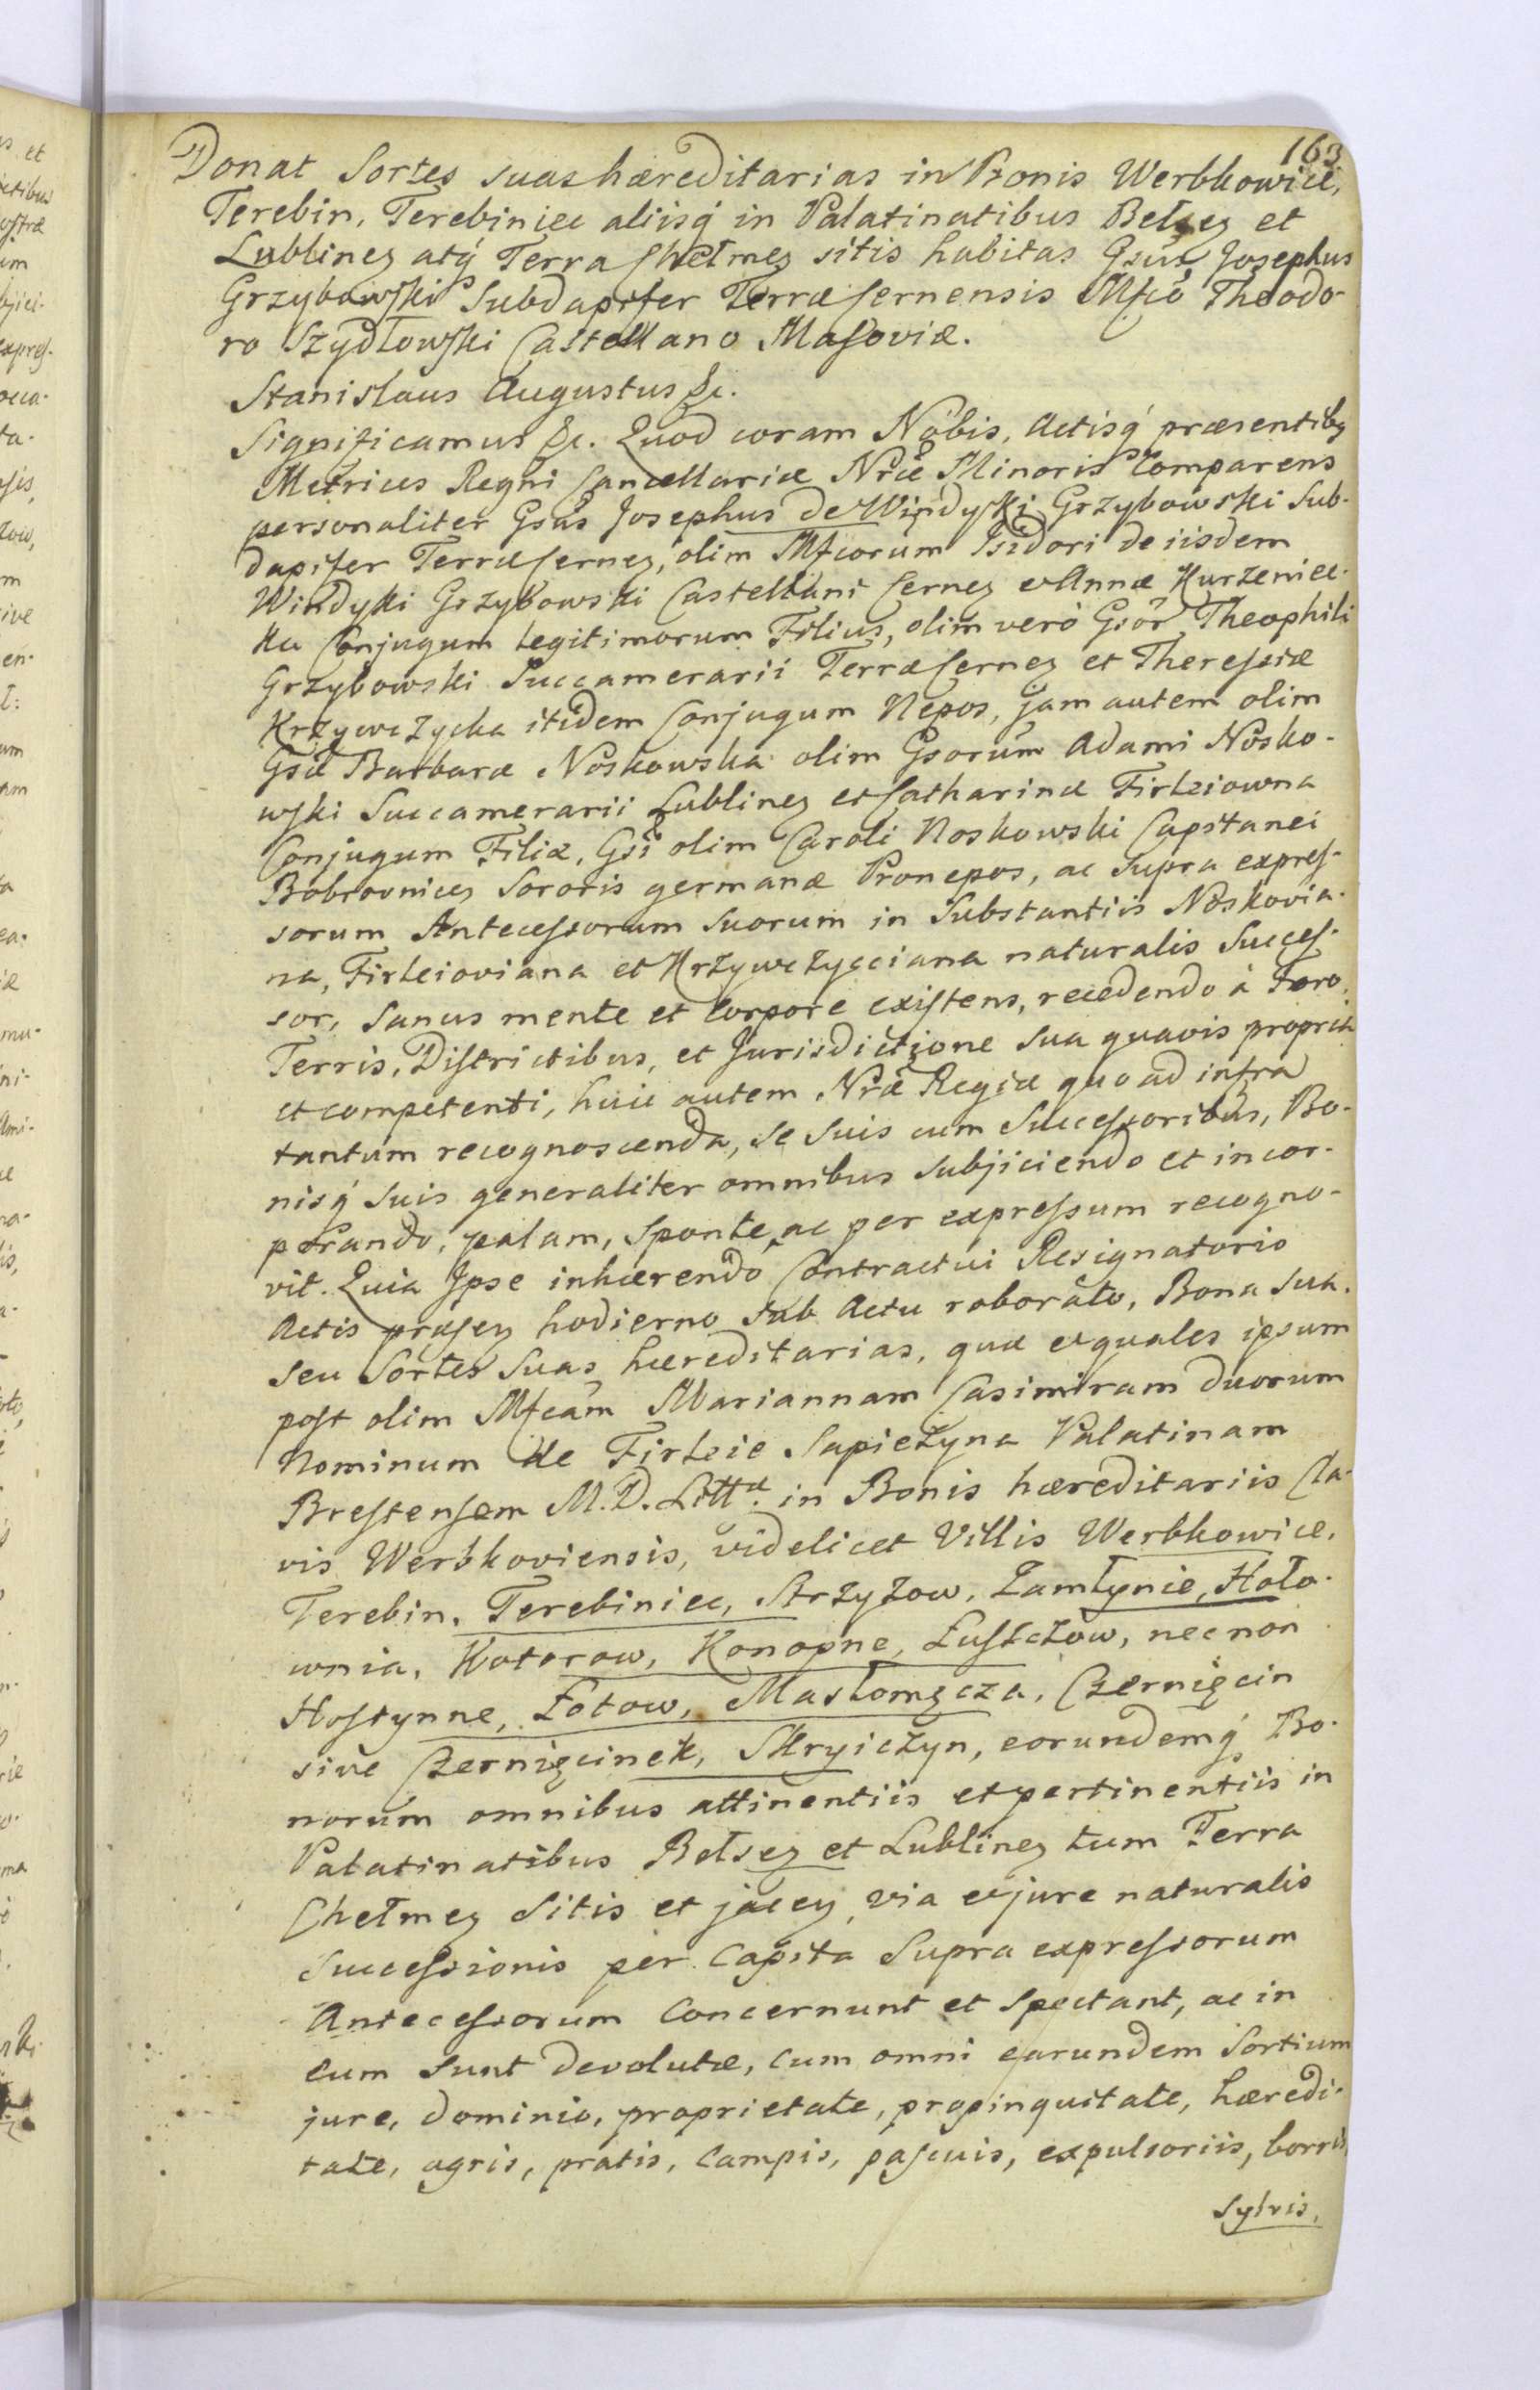 163.
Donat Sortes suas hæreditarias in Bonis Werbkowice,
Terebin, Terebiniec aliisq́ in Palatinatibus Belsez et
Lublinez atq́ Terra Chełmez sitis habitas Gsus Josephus
Grzybowski Subdapifer Terræ Cernensis Mfco Theodo-
ro Szydłowski Castellano Masoviæ.
Stanislaus Augustus &c.
Significamus &c. Quod coram Nobis, Actisq́ præsentibq
Metrices Regni Cancellariæ Nræ Minoris Comparens
personaliter Gsus Josephus de Windyki Grzybowski Sub-
dapifer Terræ Cernez, olim Mfcorum Isidori de iisdem
Windyki Grzybowski Castellani Cernez et Annæ Kurzeniec-
ka Conjugum legitimorum Filius, olim verò Gsor Theophili
Grzybowski Succamerarii Terræ Cernez et Theressiæ
Krzywczycka itidem Conjugum Nepos, jam autem olim
Gsæ Barbaræ Noskowska olim Gsorum Adami Nosko-
wski Succamerarii Lublinez et Catharinæ Firleiowna
Conjugum Filiæ, Gsi olim Caroli Noskowski Capitanei
Bobrovnicez Sororis germanæ Pronepos, ac supra expres-
sorum Antecessorum Suorum in Substantiis Noskovia-
na, Firleioviana et Krzywczycciana naturalis Succes-
sor, Sanus mente et Corpore existens, recedendo à Foro,
Terris, Districtibus, et Jurisdictione sua quavis propria
et competenti, huic autem Nræ Regiæ quo ad infra
tantum recognoscenda, se suis cum Successoribus, Bo-
nisq́ suis generaliter omnibus subjiciendo et incor-
porando, palam, sponte, ac per expressum recogno-
vit. Quia Ipse inhærendo Contractui Resignatorio
Actis præsez hodierno sub Actu roborato, Bona sua.
seu Sortes suas hæreditarias, quæ et quales ipsum
post olim Mfcam Mariannam Casimiram duorum
Nominum de Firleie Sapieżyna Palatinam
Brestensem M. D. Littæ. in Bonis hæreditariis Cla-
vis Werbkoviensis, videlicet Villis Werbkowice,
Terebin, Terebiniec, Strzyżow, Zamłynie, Hoło-
wnia, Kotorow, Konopne, Łuszczow, nec non
Hostynne, Łotow, Masłomęcza, Czernięcin
sive Czernięcinek, Mryiczyn, eorundemq́ Bo-
norum omnibus attinentiis et pertinentiis in
Palatinatibus Belsez et Lublinez tum Terra
Chełmez sitis et jacez, via et jure naturalis
Successionis per Capita supra expressorum
Antecessorum Concernunt et spectant, ac in
eum sunt devolutæ, cum omni earundem Sortium
jure, dominio, proprietate, propinquitate, hæredi-
tate, agris, pratis, Campis, pascuis, expulsoriis, borris,
Sylvis,